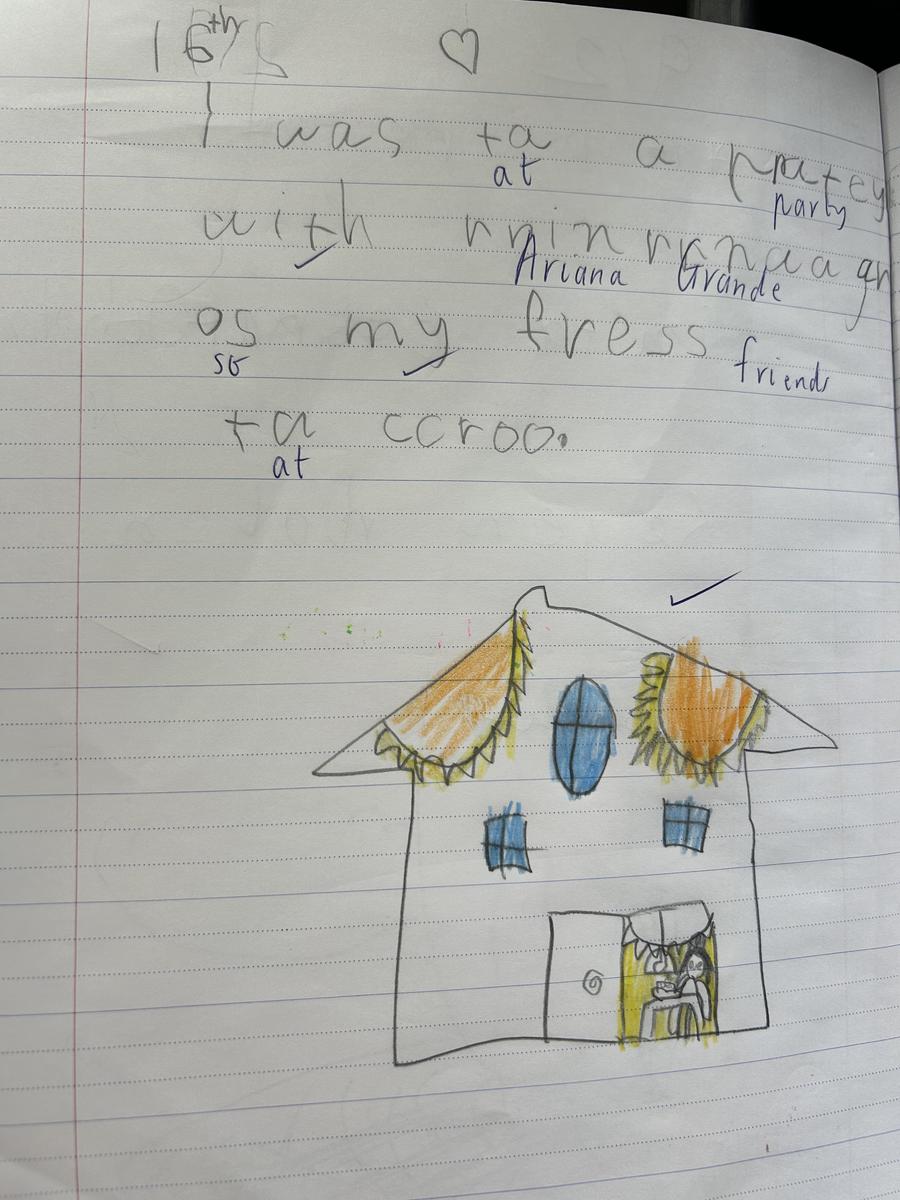 16th/5
I was ta a pratey
at party
with rrin rrnaa gr
Ariana Grande
os my fress
so friends
ta ccroo.
at